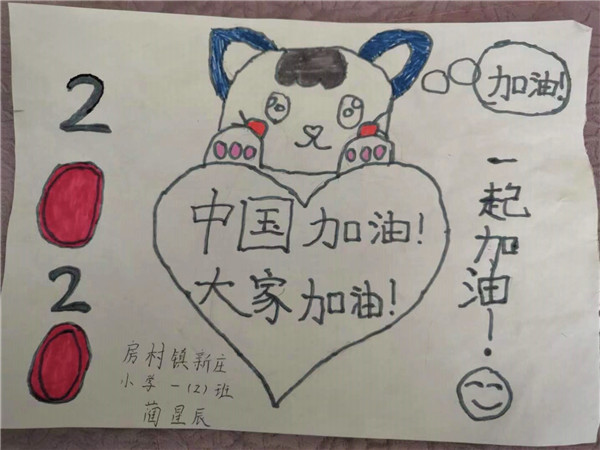 2020
中国加油!
大家加油!
加油!
一起加油!
房村镇新庄
小学一(2)班
蔺星辰